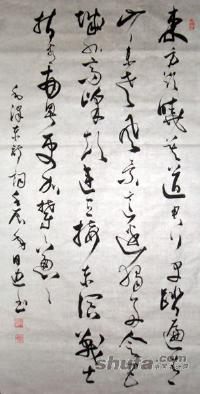 東方欲曉莫道君行早踏遍青
山人未老風景這邊獨好會昌
城外高峰顛連直接東溟戰士
指看南粤更加郁郁葱葱
毛澤東詩詞壬辰
书
shufa.com